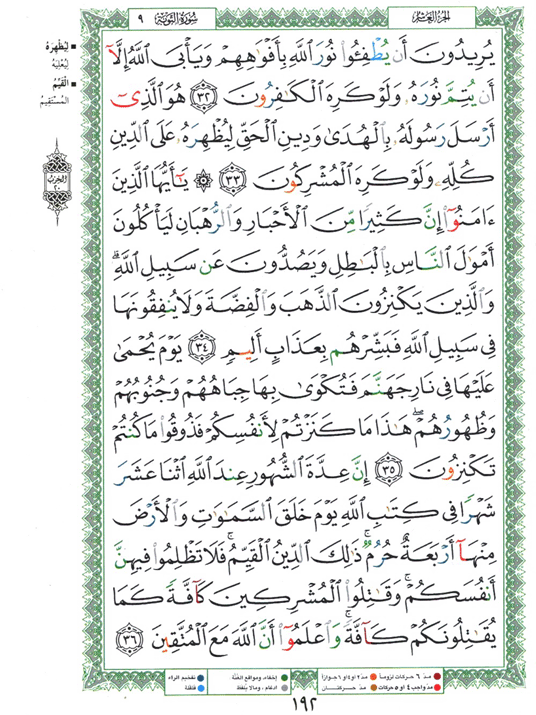 الجزء العاشر
سورة التوبة
٩
يُرِيدُونَ أَن يُطْفِـُٔوا۟ نُورَ ٱللَّهِ بِأَفْوَٰهِهِمْ وَيَأْبَى ٱللَّهُ إِلَّآ
أَن يُتِمَّ نُورَهُۥ وَلَوْ كَرِهَ ٱلْكَـٰفِرُونَ ٣٢ هُوَ ٱلَّذِىٓ
أَرْسَلَ رَسُولَهُۥ بِٱلْهُدَىٰ وَدِينِ ٱلْحَقِّ لِيُظْهِرَهُۥ عَلَى ٱلدِّينِ
كُلِّهِۦ وَلَوْ كَرِهَ ٱلْمُشْرِكُونَ ٣٣ ۞ يَـٰٓأَيُّهَا ٱلَّذِينَ
ءَامَنُوٓا۟ إِنَّ كَثِيرًا مِّنَ ٱلْأَحْبَارِ وَٱلرُّهْبَانِ لَيَأْكُلُونَ
أَمْوَٰلَ ٱلنَّاسِ بِٱلْبَـٰطِلِ وَيَصُدُّونَ عَن سَبِيلِ ٱللَّهِ ۗ
وَٱلَّذِينَ يَكْنِزُونَ ٱلذَّهَبَ وَٱلْفِضَّةَ وَلَا يُنفِقُونَهَا
فِى سَبِيلِ ٱللَّهِ فَبَشِّرْهُم بِعَذَابٍ أَلِيمٍ ٣٤ يَوْمَ يُحْمَىٰ
عَلَيْهَا فِى نَارِ جَهَنَّمَ فَتُكْوَىٰ بِهَا جِبَاهُهُمْ وَجُنُوبُهُمْ
وَظُهُورُهُمْ ۖ هَـٰذَا مَا كَنَزْتُمْ لِأَنفُسِكُمْ فَذُوقُوا۟ مَا كُنتُمْ
تَكْنِزُونَ ٣٥ إِنَّ عِدَّةَ ٱلشُّهُورِ عِندَ ٱللَّهِ ٱثْنَا عَشَرَ
شَهْرًا فِى كِتَـٰبِ ٱللَّهِ يَوْمَ خَلَقَ ٱلسَّمَـٰوَٰتِ وَٱلْأَرْضَ
مِنْهَآ أَرْبَعَةٌ حُرُمٌ ۚ ذَٰلِكَ ٱلدِّينُ ٱلْقَيِّمُ ۚ فَلَا تَظْلِمُوا۟ فِيهِنَّ
أَنفُسَكُمْ ۚ وَقَـٰتِلُوا۟ ٱلْمُشْرِكِينَ كَآفَّةً كَمَا
يُقَـٰتِلُونَكُمْ كَآفَّةً ۚ وَٱعْلَمُوٓا۟ أَنَّ ٱللَّهَ مَعَ ٱلْمُتَّقِينَ ٣٦
■ لِيُظْهِرَهُ
لِيُعْلِيَهُ
■ الْقَيِّمُ
المُسْتَقِيمُ
الحزب
٢٠
مد ٦ حركات لزوماً ● مد ٢ أو ٤ أو ٦ جوازاً
مد واجب ٤ أو ٥ حركات ● مد حركتان
إخفاء، ومواقع الغنّة
ادغام، وما لا يُلفظ
تفخيم الراء
قلقلة
١٩٢